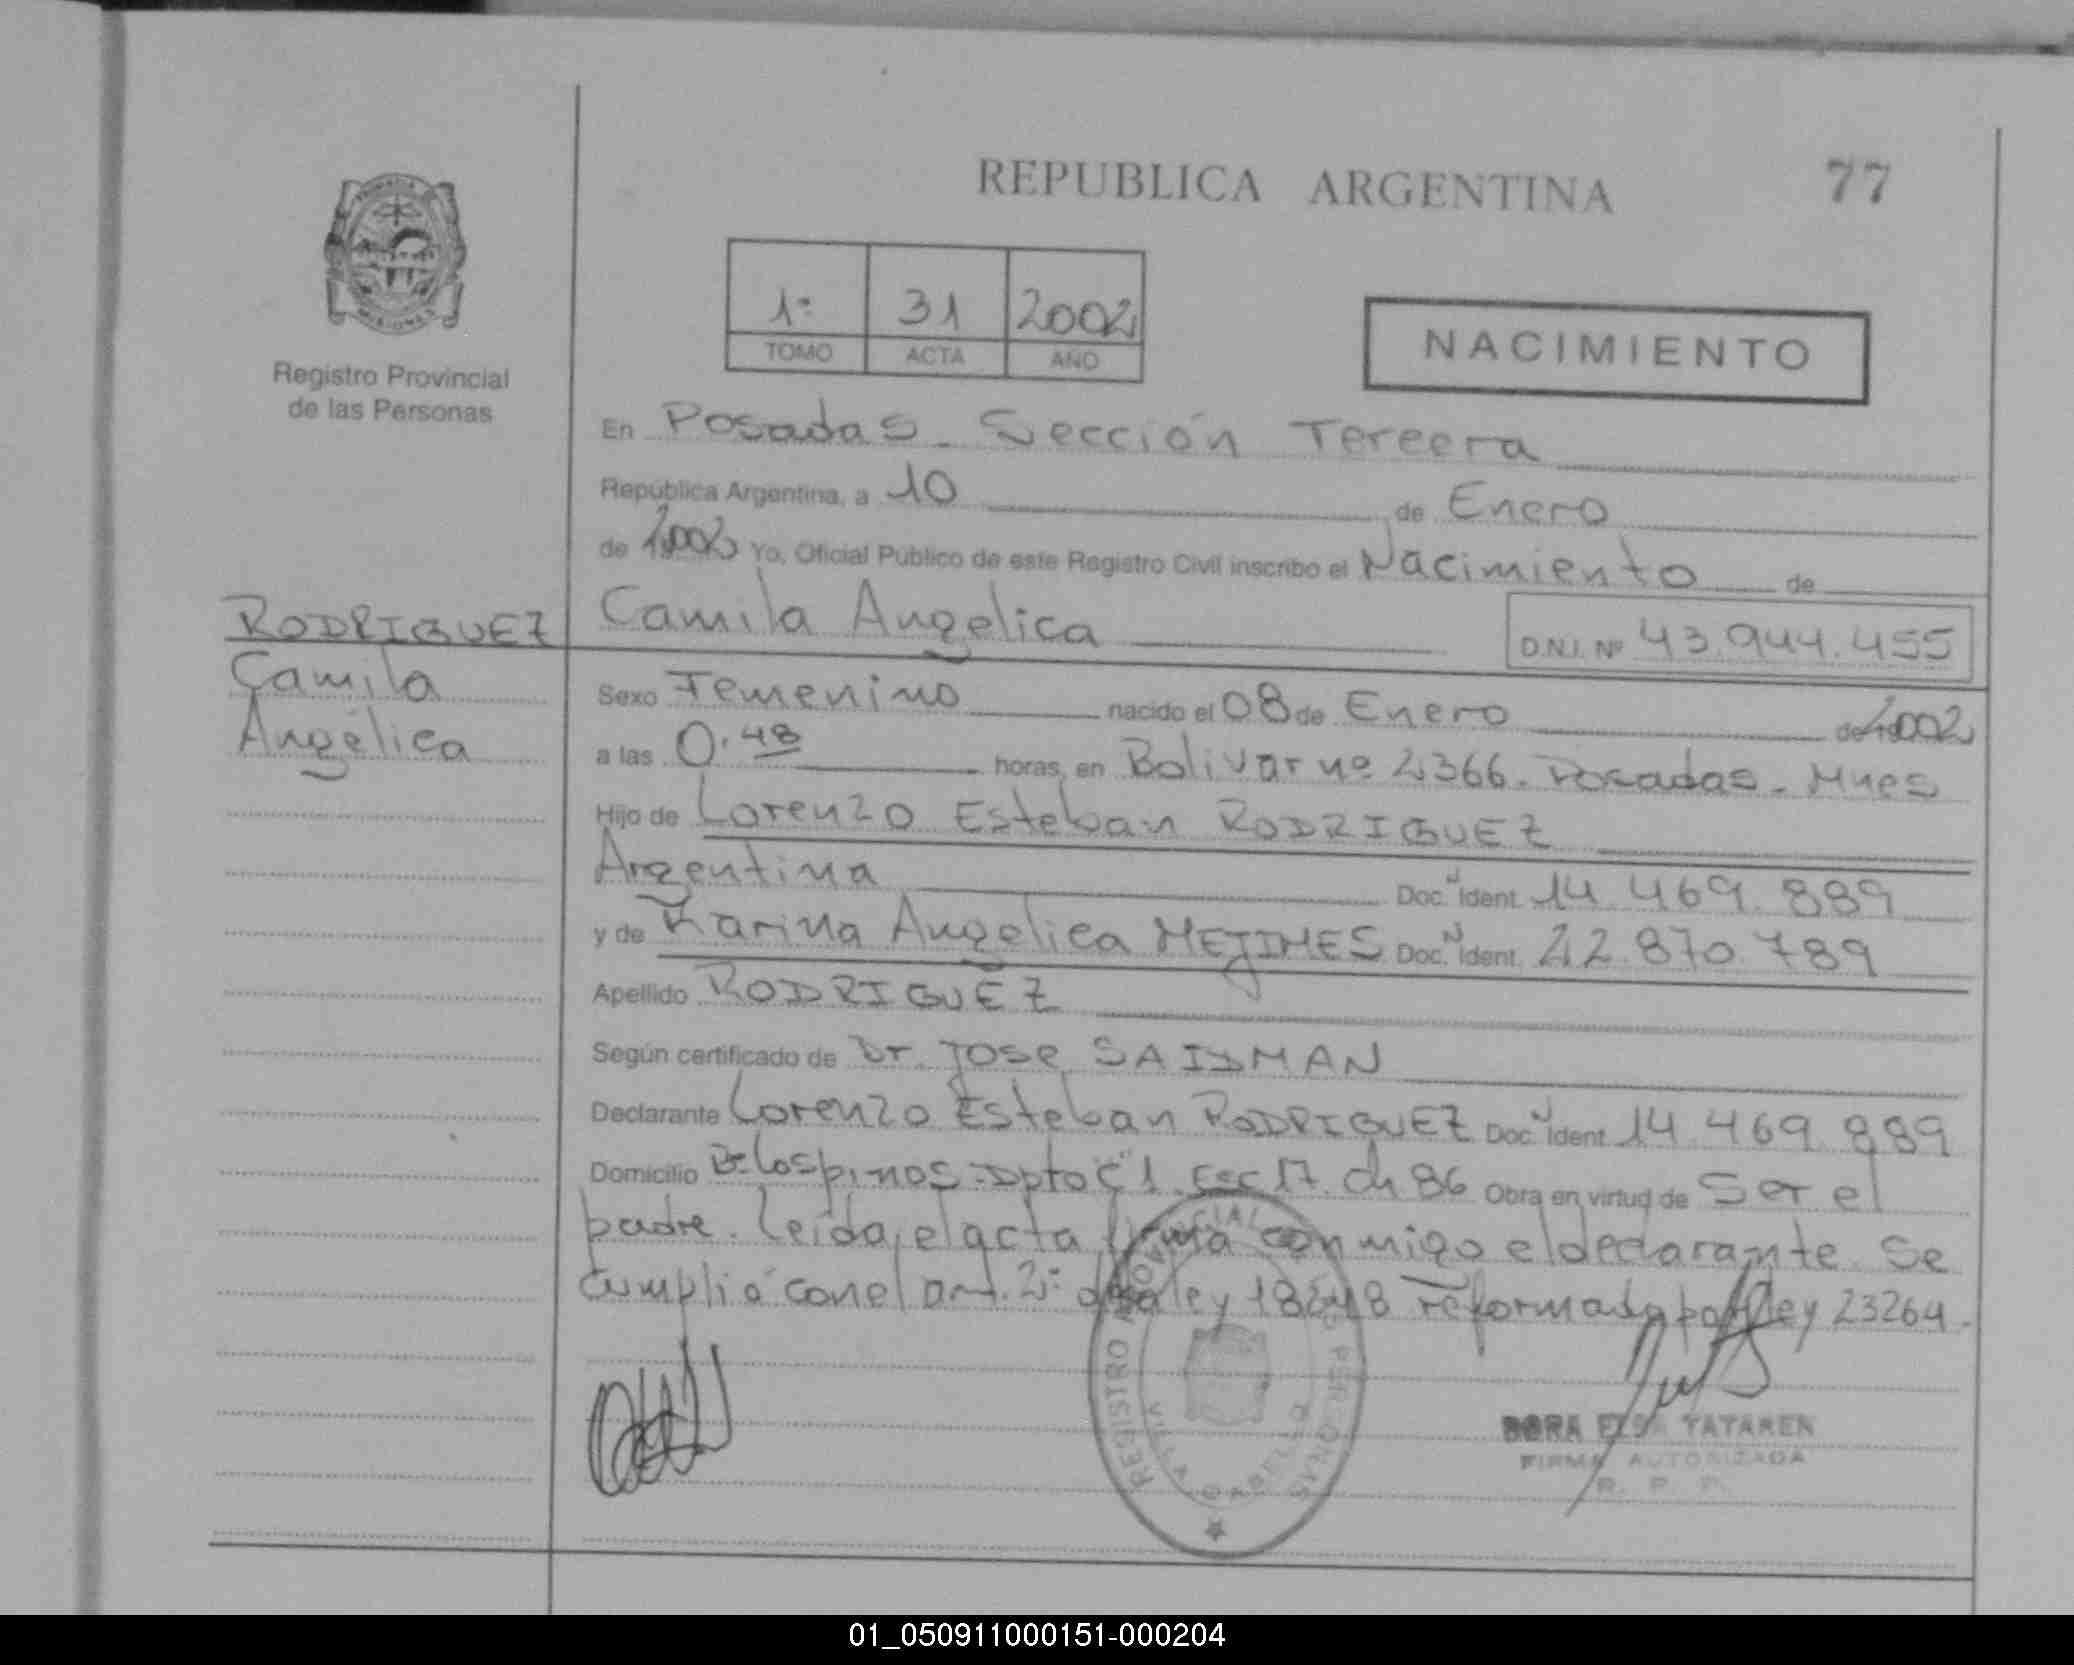 REPUBLICA ARGENTINA
77
1º 31 2002
TOMO ACTA AÑO
NACIMIENTO
Registro Provincial
de las Personas
MISIONES
En Posadas - Sección Tercera
República Argentina, a 10 de Enero
de 2002 Yo, Oficial Público de este Registro Civil inscribo el Nacimiento de
RODRIGUEZ
Camila
Angélica
Camila Angelica
D.N.I. Nº 43.944.455
Sexo Femenino nacido el 08 de Enero de 2002
a las 0.48 horas, en Bolivar nº 2366. Posadas - Mnes
Hijo de Lorenzo Esteban RODRIGUEZ
Argentina Doc. Ident. 14.469.889
y de Karina Angelica MEJIMES Doc. Ident. 22.870.789
Apellido RODRIGUEZ
Según certificado de Dr. Jose SAIDMAN
Declarante Lorenzo Esteban RODRIGUEZ Doc. Ident. 14.469.889
Domicilio Bº Los pinos - Dpto "C" 1 Esc 17. ch 86 Obra en virtud de Ser el
padre. Leída el acta firma conmigo el declarante. Se
cumplió con el art. 2º de la ley 18248 reformada por ley 23264.
REGISTRO PROVINCIAL PERSONAS
VILLA CABELLO
DORA ELSA TATAREN
FIRMA AUTORIZADA
R. P. P.
01_050911000151-000204